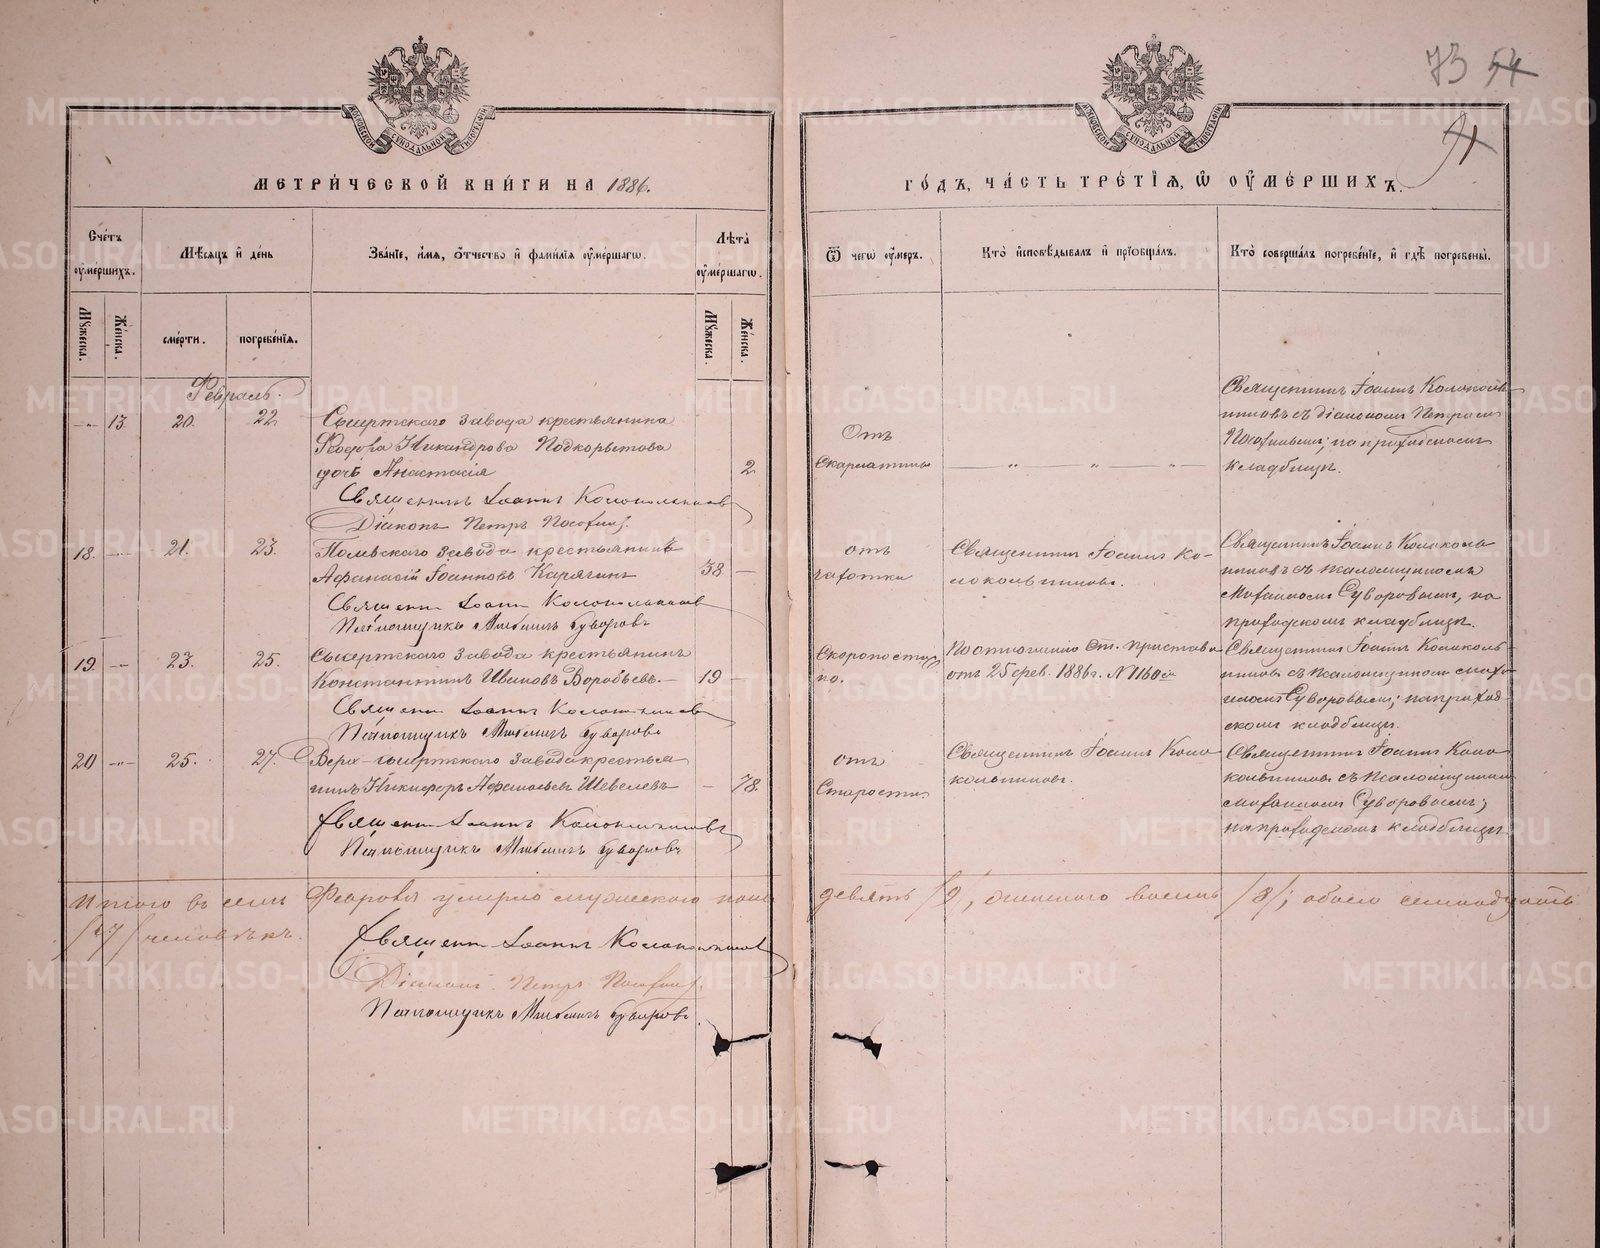 73 54
91
МЕТРИЧЕСКОЙ КНИГИ НА 1886.
ГОДЪ, ЧАСТЬ ТРЕТІЯ, Ѿ ОУМЕРШИХЪ.
Счетъ оумершихъ.
Мѣсяцъ и день
Званіе, имя, отчество и фамилія оумершагω.
Лѣта оумершагω.
Ѿ чегω оумеръ.
Кто исповѣдывалъ и пріобщалъ.
Кто совершалъ погребеніе, и гдѣ погребены.
Мужеска.
Женска.
смерти.
погребенія.
Мужеска
Женска.
Февраль.
13. 20. 22.
Сысертскаго завода крестьянина
Ѳеодора Никандрова Подкорытова
дочь Анастасія
2.
Отъ
Скарлатины
Священникъ Іоаннъ Колоколь-
никовъ съ діакономъ Петромъ
на приходскомъ
кладбищѣ.
Священникъ Іоаннъ Колокольниковъ
Діаконъ Петръ
18. 21. 23.
Полевскаго завода крестьянинъ
Афанасій Іоанновъ Карягинъ
38
отъ
чахотки
Священникъ Іоаннъ Ко-
локольниковъ.
Священникъ Іоаннъ Колоколь-
никовъ съ псаломщикомъ
Михаиломъ Суворовымъ, на
приходскомъ кладбищѣ.
Священникъ Іоаннъ Колокольниковъ
Псаломщикъ Михаилъ Суворовъ
19. 23. 25.
Сысертскаго завода крестьянинъ
Константинъ Ивановъ Воробьевъ.
19
Скоропостиж
но.
По отношенію Ст. Пристава
отъ 25 февр. 1886 г. № 1160
Священникъ Іоаннъ Колоколь-
никовъ съ псаломщикомъ Миха-
иломъ Суворовымъ; на приход-
скомъ кладбищѣ.
Священникъ Іоаннъ Колокольниковъ
Псаломщикъ Михаилъ Суворовъ
20 25. 27.
Верх-сысертскаго завода крестья
нинъ Никифоръ Афанасьевъ Шевелевъ
78
отъ
Старости.
Священникъ Іоаннъ Коло
кольниковъ.
Священникъ Іоаннъ Коло
кольниковъ съ псаломщикомъ
Михаиломъ Суворовымъ;
на приходскомъ кладбищѣ
Священникъ Іоаннъ Колокольниковъ
Псаломщикъ Михаилъ Суворовъ
Итого въ семъ Февралѣ умерло мужескаго пола девять /9/, женскаго восемь /8/; обоего семнадцать
/17/ человѣкъ.
Священникъ Іоаннъ Колокольниковъ
Діаконъ Петръ
Псаломщикъ Михаилъ Суворовъ
METRIKI.GASO-URAL.RU